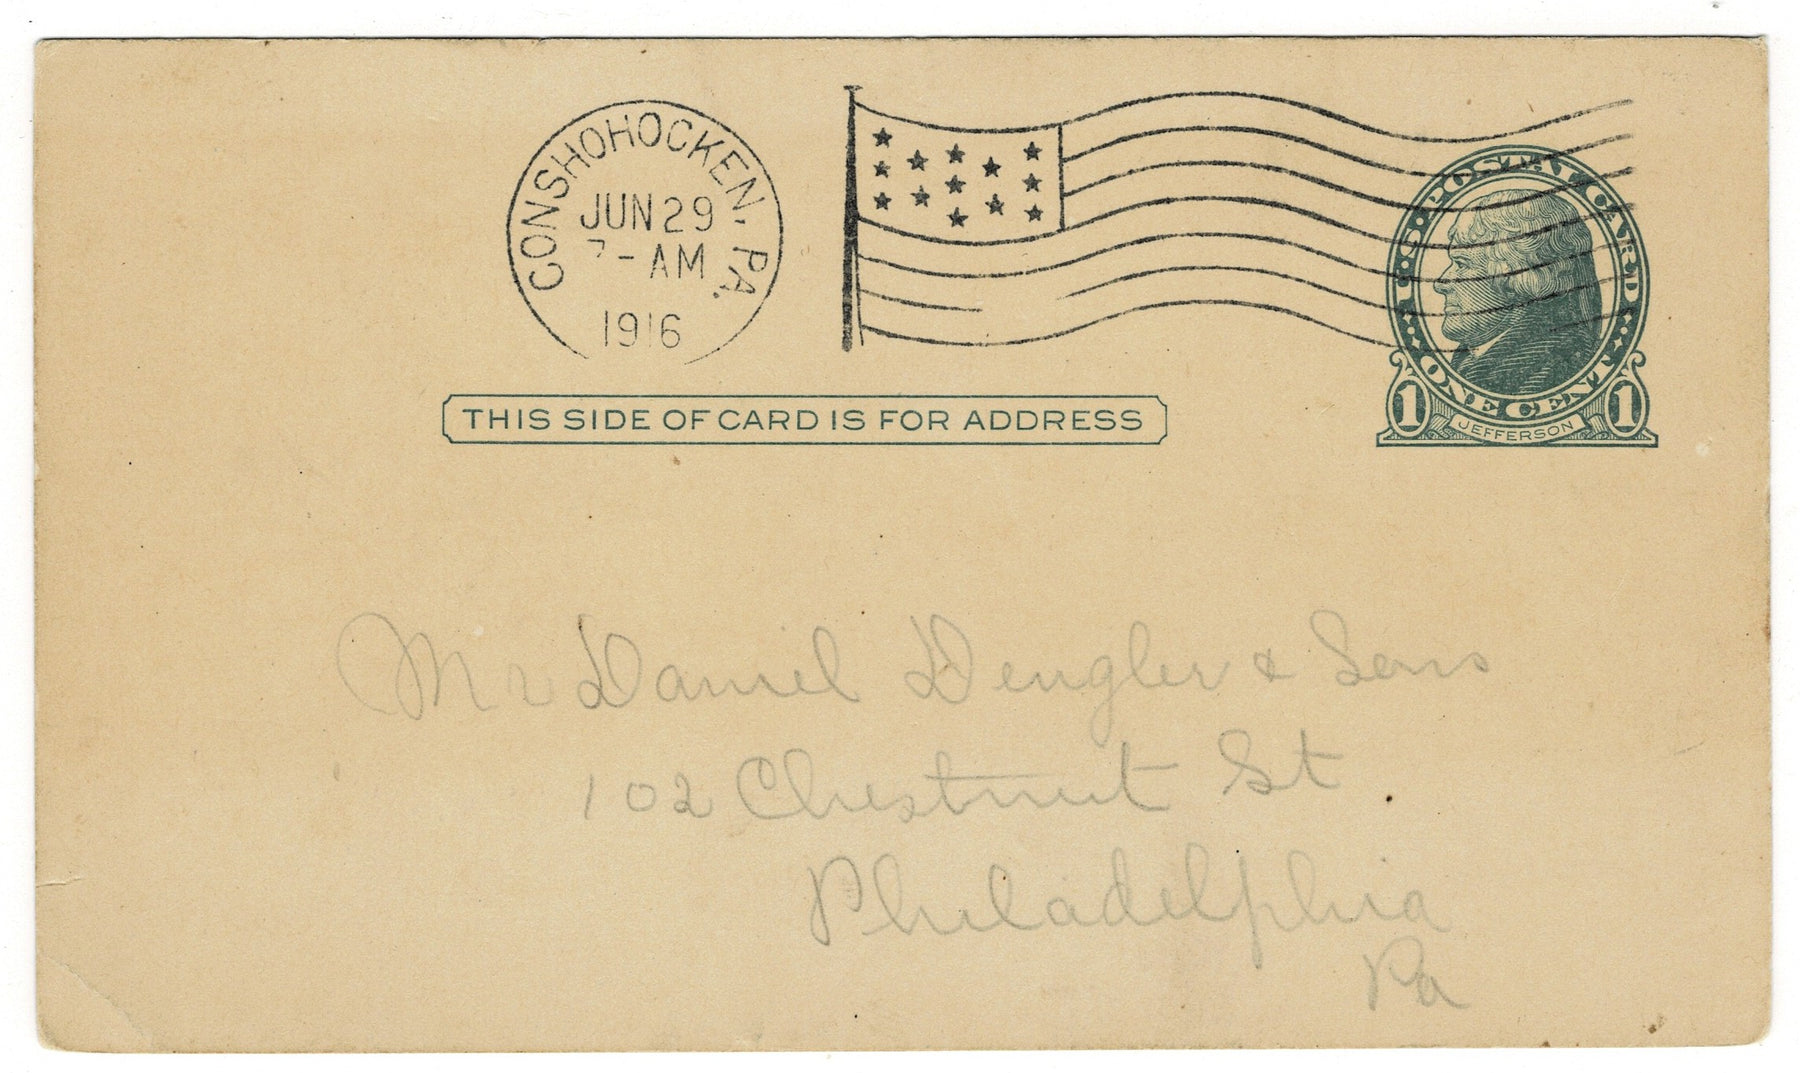 CONSHOHOCKEN, PA.
JUN 29
7-AM
1916
U·S·POSTAL CARD
ONE CENT
1 JEFFERSON 1
THIS SIDE OF CARD IS FOR ADDRESS
Mr Daniel Dengler & Sons
102 Chestnut St
Philadelphia
Pa